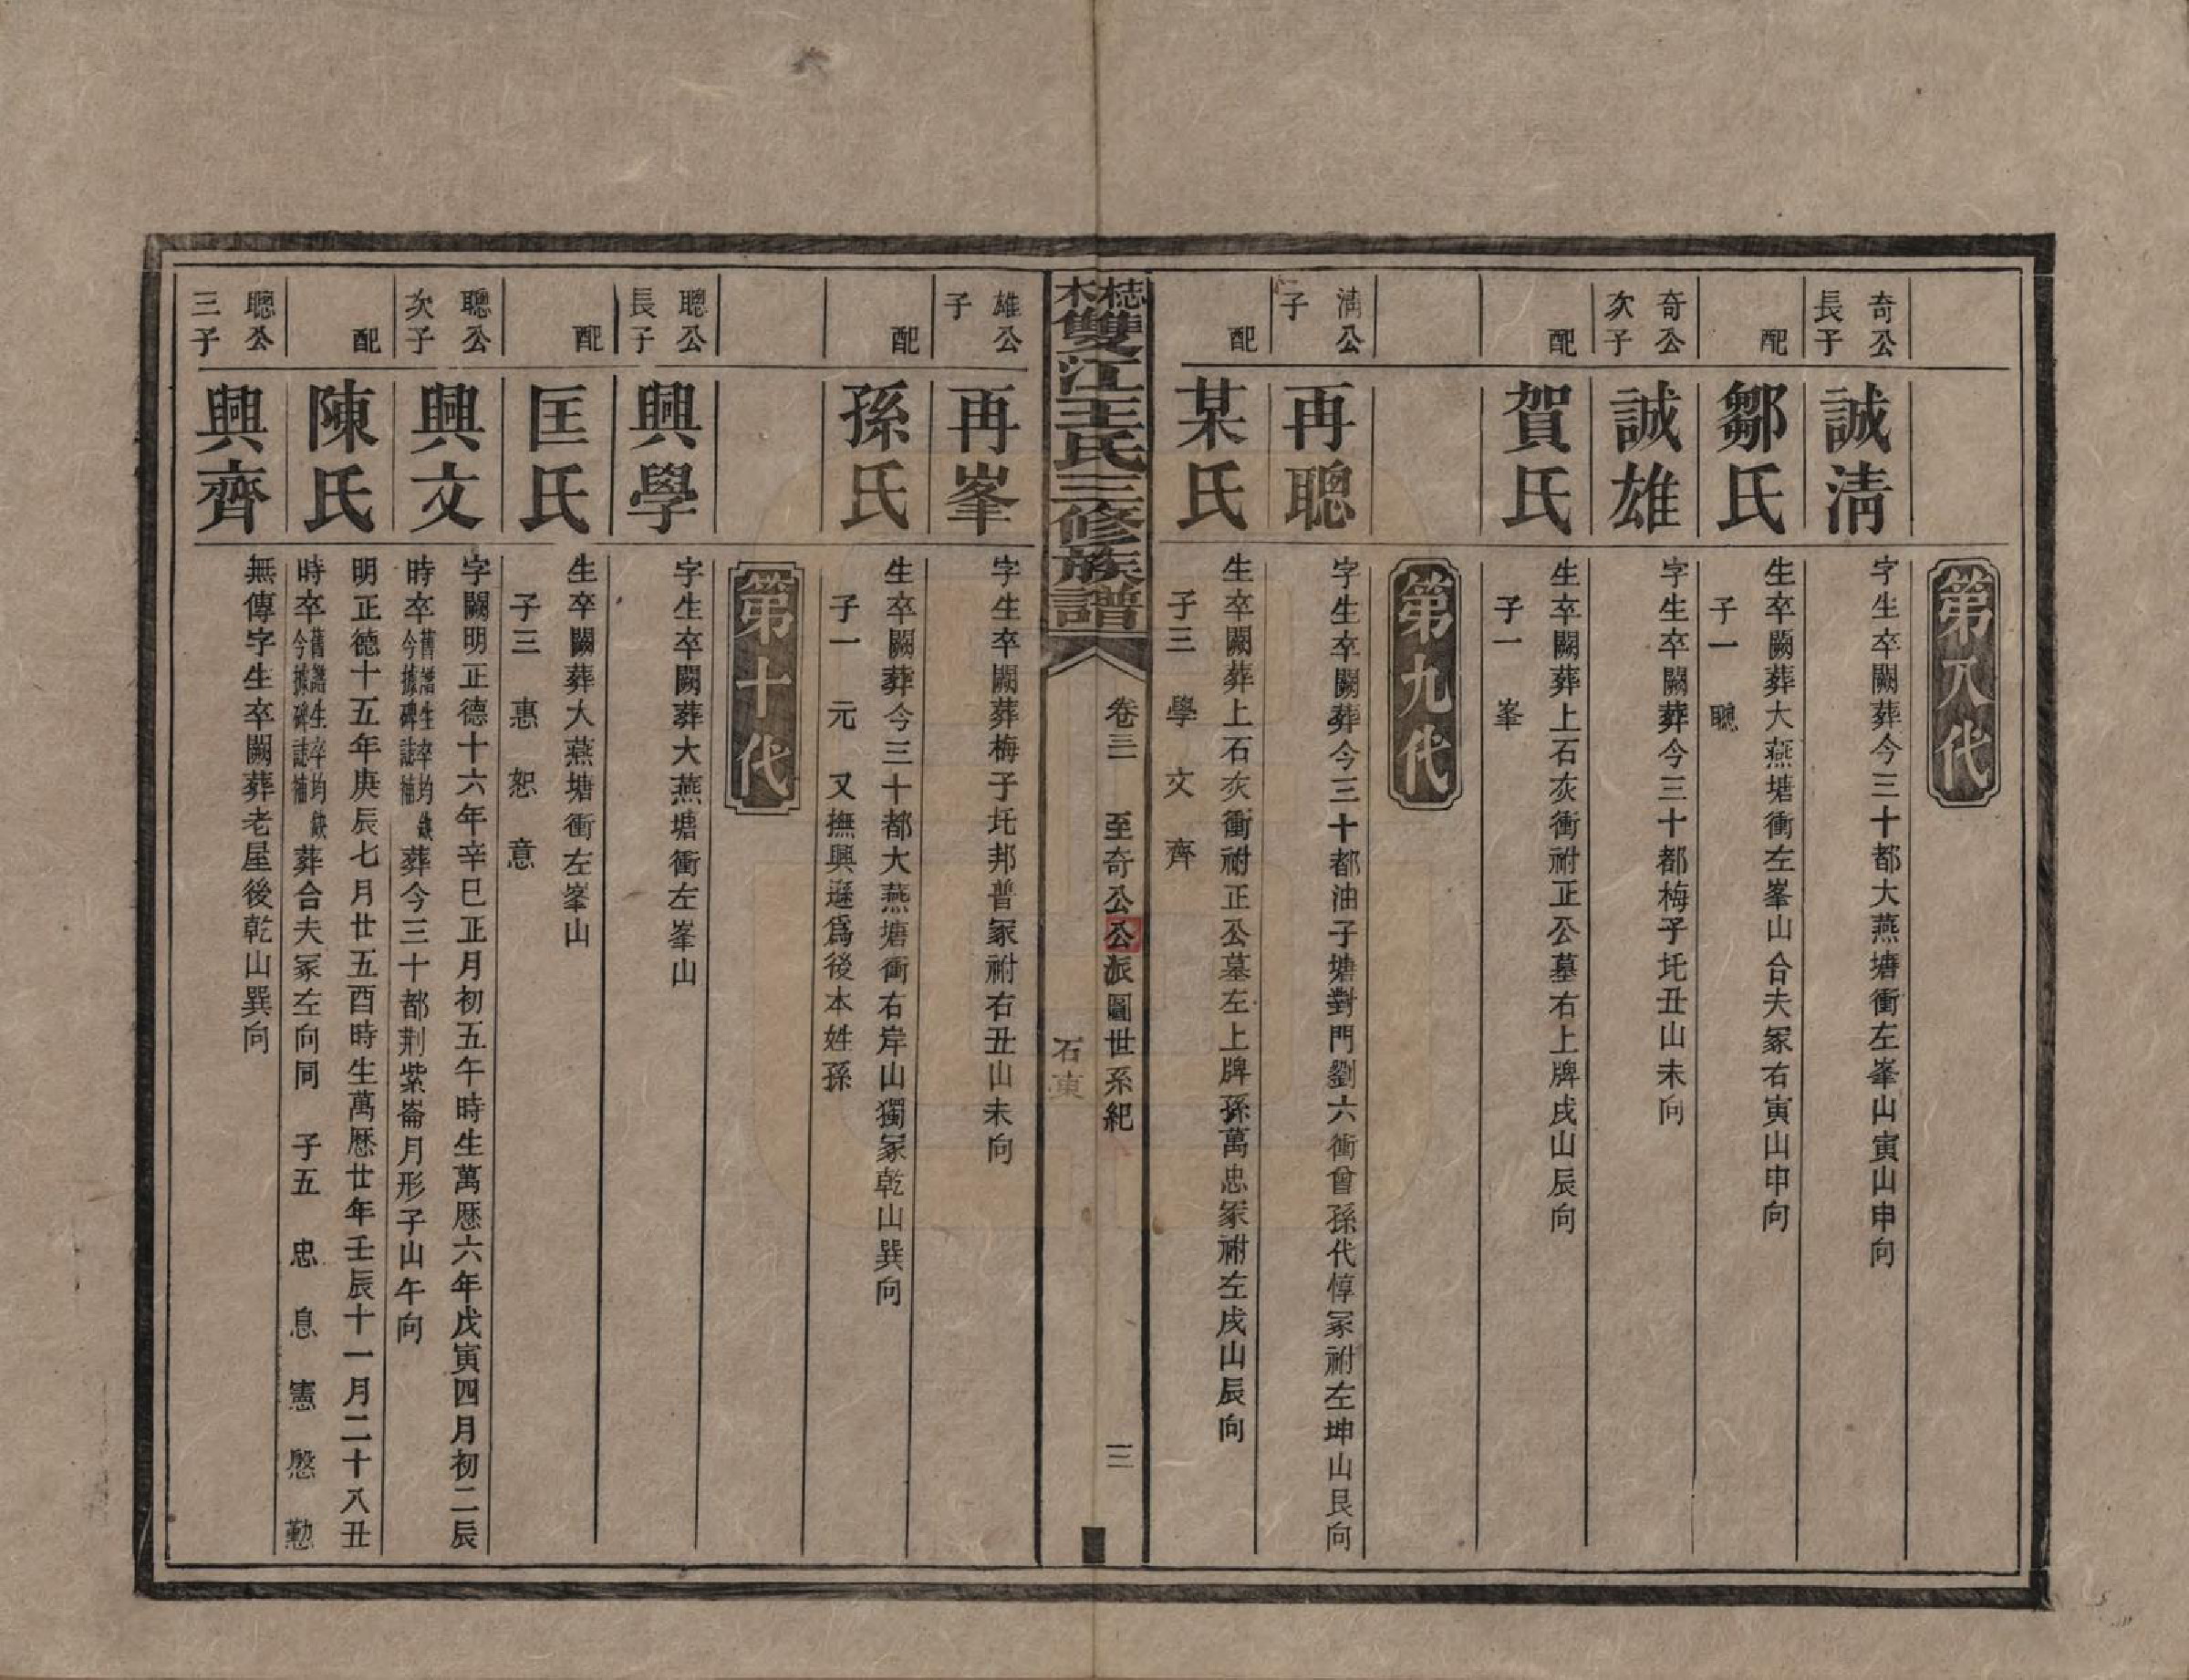 第八代
奇公長子
誠淸
字生卒闕葬今三十都大燕塘衝左峯山寅山申向
配
鄒氏
生卒闕葬大燕塘衝左峯山合夫冢右寅山申向
子一　聰
奇公次子
誠雄
字生卒闕葬今三十都梅子圫丑山未向
配
賀氏
生卒闕葬上石灰衝祔正公墓右上牌戌山辰向
子一　峯
第九代
淸公子
再聰
字生卒闕葬今三十都油子塘對門劉六衝曾孫代惇冢祔左坤山艮向
配
某氏
生卒闕葬上石灰衝祔正公墓左上牌孫萬忠冢祔左戌山辰向
子三　學　文　齊
雙江王氏三修族譜
卷三　至奇公公派圖世系紀
三
雄公子
再峯
字生卒闕葬梅子圫邦普冢祔右丑山未向
配
孫氏
生卒闕葬今三十都大燕塘衝右岸山獨冢乾山巽向
子一　元　又撫興遜爲後本姓孫
第十代
聰公長子
興學
字生卒闕葬大燕塘衝左峯山
配
匡氏
生卒闕葬大燕塘衝左峯山
子三　惠　恕　意
聰公次子
興文
字闕明正德十六年辛巳正月初五午時生萬厯六年戊寅四月初二辰
時卒舊譜生卒均缺今據碑誌補葬今三十都荆紫崙月形子山午向
配
陳氏
明正德十五年庚辰七月廿五酉時生萬厯廿年壬辰十一月二十八丑
時卒舊譜生卒均缺今據碑誌補葬合夫冢左向同　子五　忠　息　憲　慇　懃
聰公三子
興齊
無傳字生卒闕葬老屋後乾山巽向